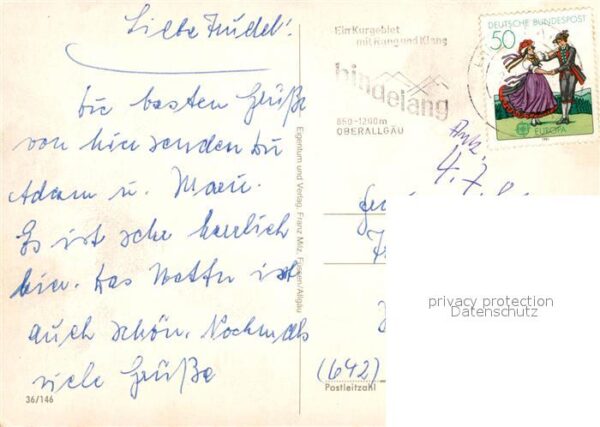 Liebe Trudel!
Die besten Grüße
von hier senden Dir
Adam u. Marie.
Es ist sehr herrlich
hier. Das Wetter ist
auch schön. Nochmals
viele Grüße
36/146
Eigentum und Verlag, Franz Milz, Füssen/Allgäu
Ein Kurgebiet
mit Rang und Klang
hindelang
850-1200 m
OBERALLGÄU
DEUTSCHE BUNDESPOST
50
EUROPA
Ank.
4.7.
(642)
Postleitzahl
privacy protection
Datenschutz